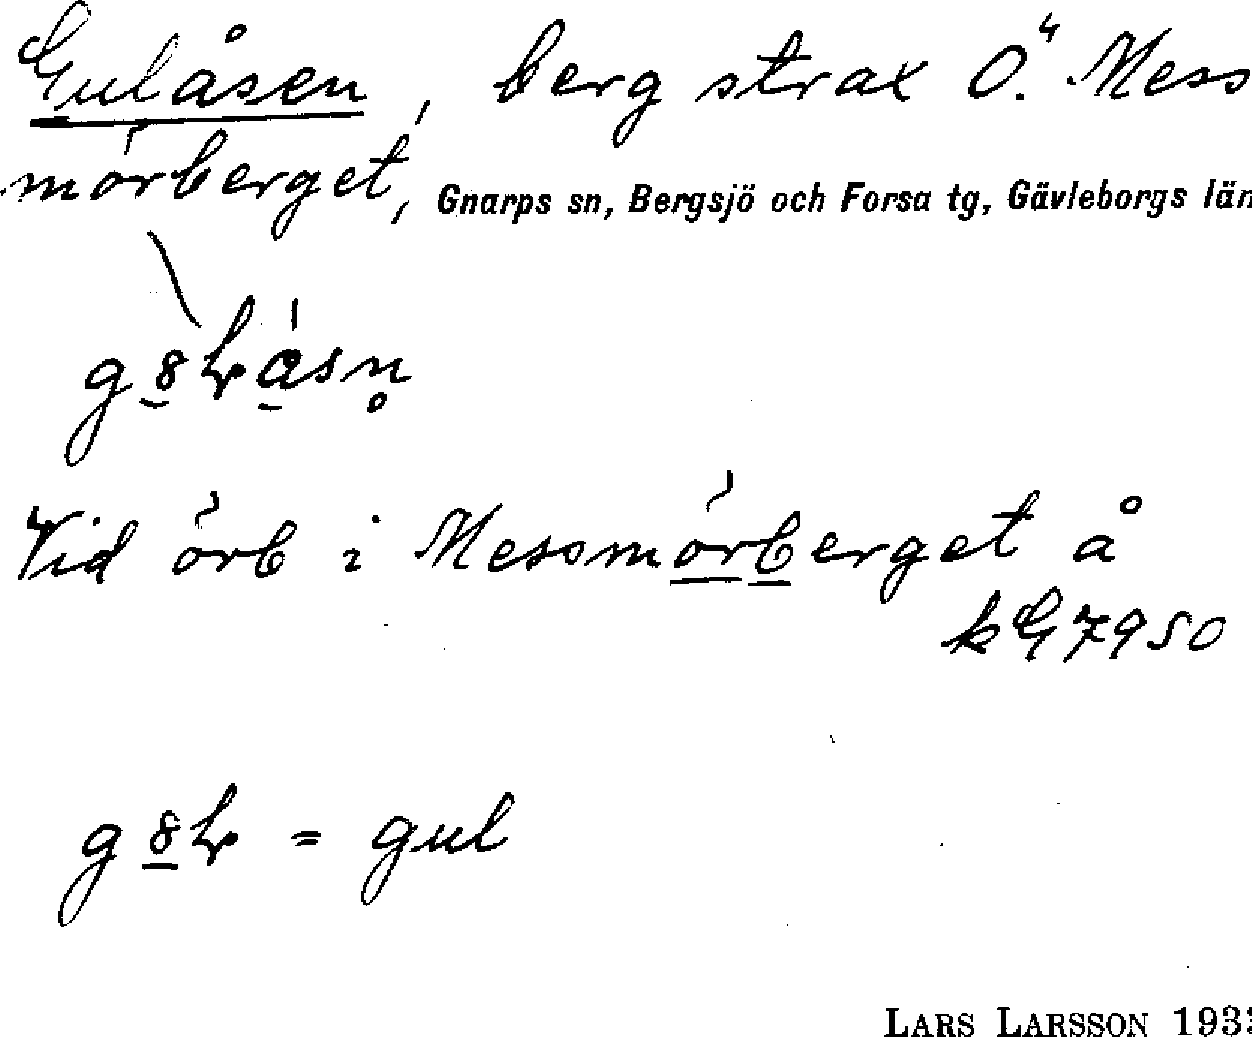 Gulåsen, berg strax Ö. Mess
mörberget, Gnarps sn, Bergsjö och Forsa tg, Gävleborgs län
Vid örb i Messmörberget å
kG7950
= gul
LARS LARSSON 193